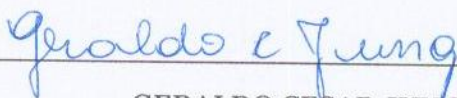 Geraldo C Jung
GERALDO CESAR